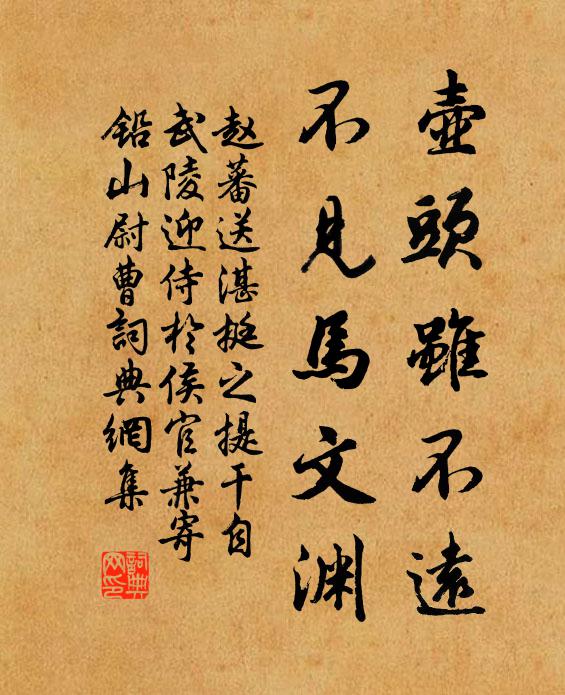 壺頭雖不遠
不見馬文渊
赵蕃送湛挺之提干自
武陵迎侍於侯官兼寄
铅山尉曹詞典網集
詞典
网印